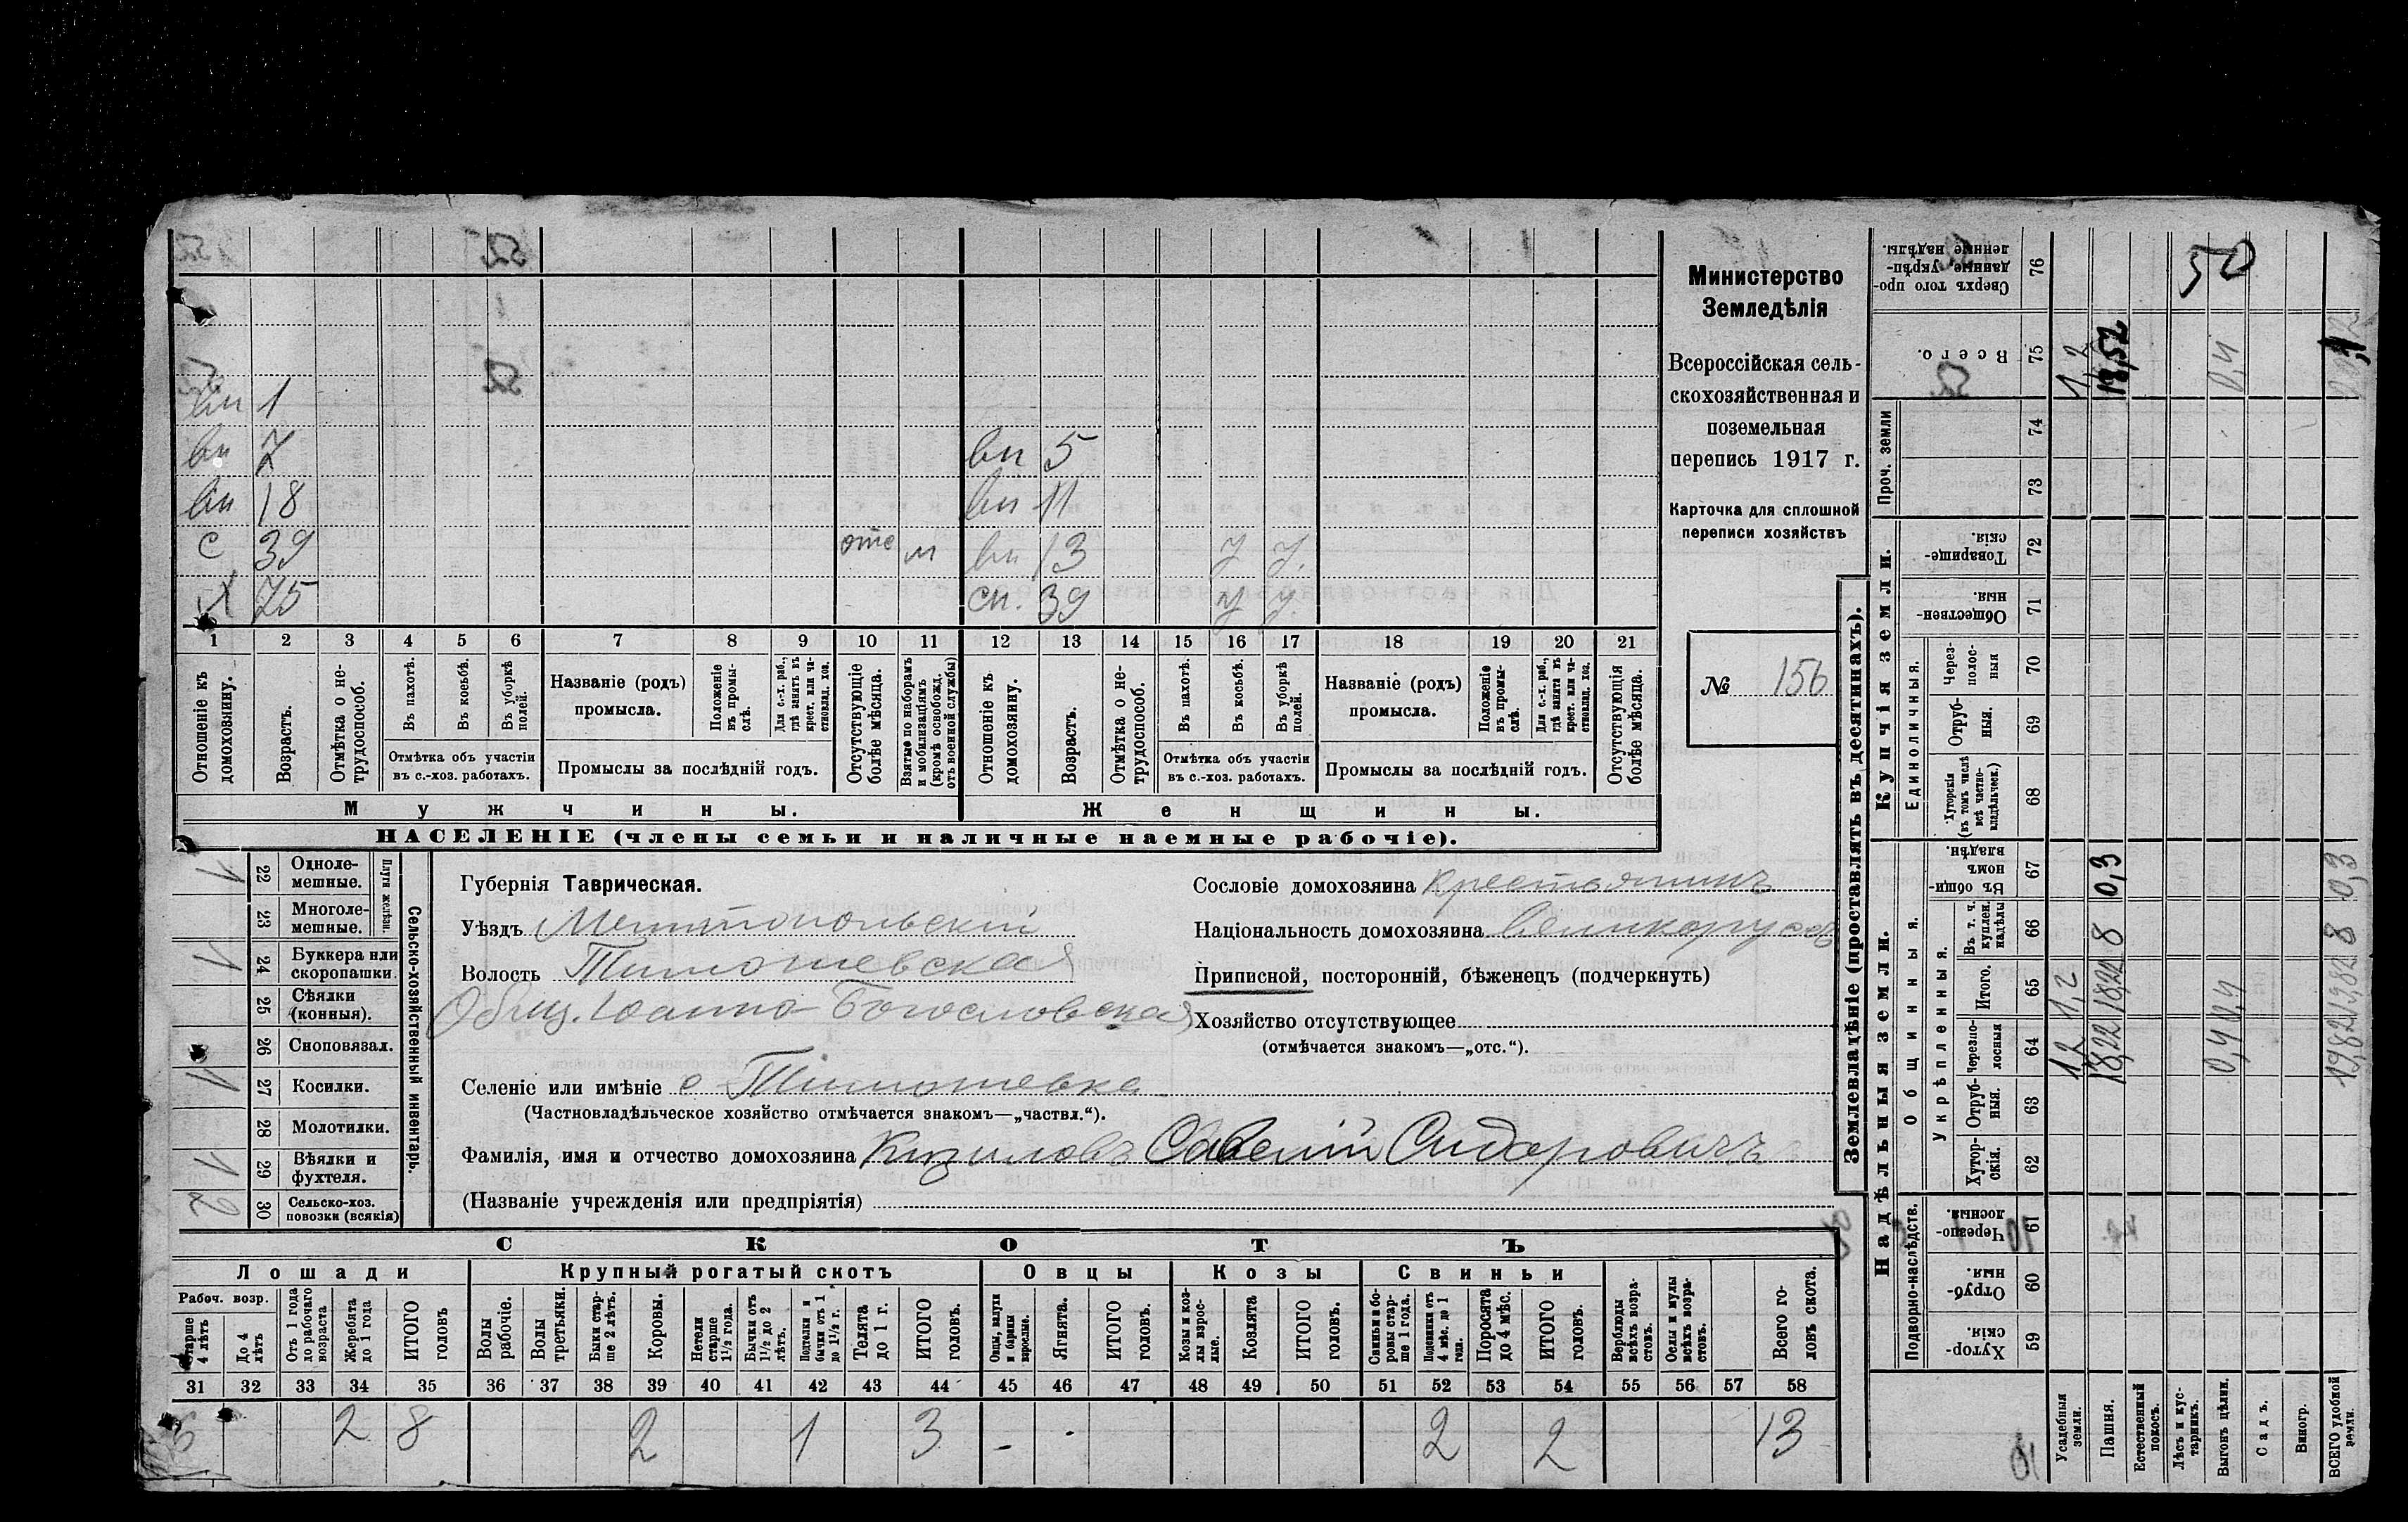 Министерство
Земледѣлія
Всероссійская сель-
скохозяйственная и
поземельная
перепись 1917 г.
Карточка для сплошной
переписи хозяйствъ
№ 156
вн 1
вн 7 вн 5
вн 18 вн 11
с 39 отс м вн 13 у у.
х 75 сн. 39 у у.
1 2 3 4 5 6 7 8 9 10 11 12 13 14 15 16 17 18 19 20 21
Отношеніе къ домохозяину.
Возрастъ.
Отмѣтка о не-трудоспособ.
Въ пахотѣ.
Въ косьбѣ.
Въ уборкѣ полей.
Отмѣтка объ участіи
въ с.-хоз. работахъ.
Названіе (родъ)
промысла.
Положеніе въ промы-слѣ.
Для с.-х. раб., гдѣ занятъ въ крест. или ча-стновлад. хоз.
Промыслы за послѣдній годъ.
Отсутствующіе болѣе мѣсяца.
Взятые по наборамъ и мобилизаціямъ (кромѣ освобожд. отъ военной службы)
Отношеніе къ домохозяину.
Возрастъ.
Отмѣтка о не-трудоспособ.
Въ пахотѣ.
Въ косьбѣ.
Въ уборкѣ полей.
Отмѣтка объ участіи
въ с.-хоз. работахъ.
Названіе (родъ)
промысла.
Положеніе въ промы-слѣ.
Для с.-х. раб., гдѣ занята въ крест. или ча-стновлад. хоз.
Промыслы за послѣдній годъ.
Отсутствующія болѣе мѣсяца.
Мужчины. Женщины.
НАСЕЛЕНІЕ (члены семьи и наличные наемные рабочіе).
Сельско-хозяйственный инвентарь.
Плуги желѣзн.
1 22 Одноле-мешные.
23 Многоле-мешные.
1 24 Буккера или скоропашки.
25 Сѣялки (конныя).
26 Сноповязал.
1 27 Косилки.
28 Молотилки.
1 29 Вѣялки и фухтеля.
2 30 Сельско-хоз. повозки (всякія)
Губернія Таврическая.
Уѣздъ Мелитопольскій
Волость Тимошевская
Общ. Іоанно-Богословская
Селеніе или имѣніе с Тимошевка
(Частновладѣльческое хозяйство отмѣчается знакомъ—„частвл.“).
Фамилія, имя и отчество домохозяина Савелій Сидоровичъ
(Названіе учрежденія или предпріятія)
Сословіе домохозяина крестьянинъ
Національность домохозяина великоруссъ
Приписной, посторонній, бѣженецъ (подчеркнуть)
Хозяйство отсутствующее
(отмѣчается знакомъ—„отс.“).
СКОТЪ
Лошади Крупный рогатый скотъ Овцы Козы Свиньи
Рабоч. возр.
Старше 4 лѣтъ
До 4 лѣтъ
Отъ 1 года до рабочаго возраста
Жеребята до 1 года
ИТОГО головъ
Волы рабочіе.
Волы третьяки.
Быки стар-ше 2 лѣтъ.
Коровы.
Нетели старше 1½ года.
Бычки отъ 1½ до 2 лѣтъ.
Подтелки и бычки отъ 1 до 1½ г.
Телята до 1 г.
ИТОГО головъ.
Овцы, валухи и бараны взрослые.
Ягнята.
ИТОГО головъ.
Козы и коз-лы взрос-лые.
Козлята
ИТОГО головъ.
Свиньи и бо-ровы стар-ше 1 года.
Подсвинки отъ 4 мѣс. до 1 года.
Поросята до 4 мѣс.
ИТОГО головъ.
Верблюды всѣхъ возра-стовъ.
Ослы и мулы всѣхъ возра-стовъ.
Всего го-ловъ скота.
31 32 33 34 35 36 37 38 39 40 41 42 43 44 45 46 47 48 49 50 51 52 53 54 55 56 57 58
6 2 8 2 1 3 - - 2 2 13
Землевладѣніе (проставлять въ десятинахъ).
Надѣльныя земли.
Купчія земли.
Проч. земли
Подворно-наслѣдств.
Общинныя.
Укрѣпленныя.
Единоличныя.
Хутор-скія. 59
Отруб-ныя. 60
Черезпо-лосныя. 61
Хутор-скія. 62
Отруб-ныя. 63
Черезпо-лосныя 64
Итого. 65
Въ т. ч. куплен. надѣлы 66
Въ общи-номъ владѣн. 67
Хуторскія (въ томъ числѣ всѣ частно-владѣльческ.) 68
Отруб-ныя. 69
Через-полос-ныя 70
Обществен-ныя. 71
Товарище-скія. 72
73
74
Всего. 75
Сверхъ того про-данные укрѣп-ленные надѣлы. 76
Усадебныя земли. 1,2 1,2 1,2
Пашня. 18,22 18,22 8 0,3 18,52
Естественный покосъ.
Лѣсъ и кус-тарникъ.
Выгонъ цѣлин. 0,4 0,4 0,4
Садъ.
Виногр.
ВСЕГО удобной земли. 19,82 19,82 8 0,3
50